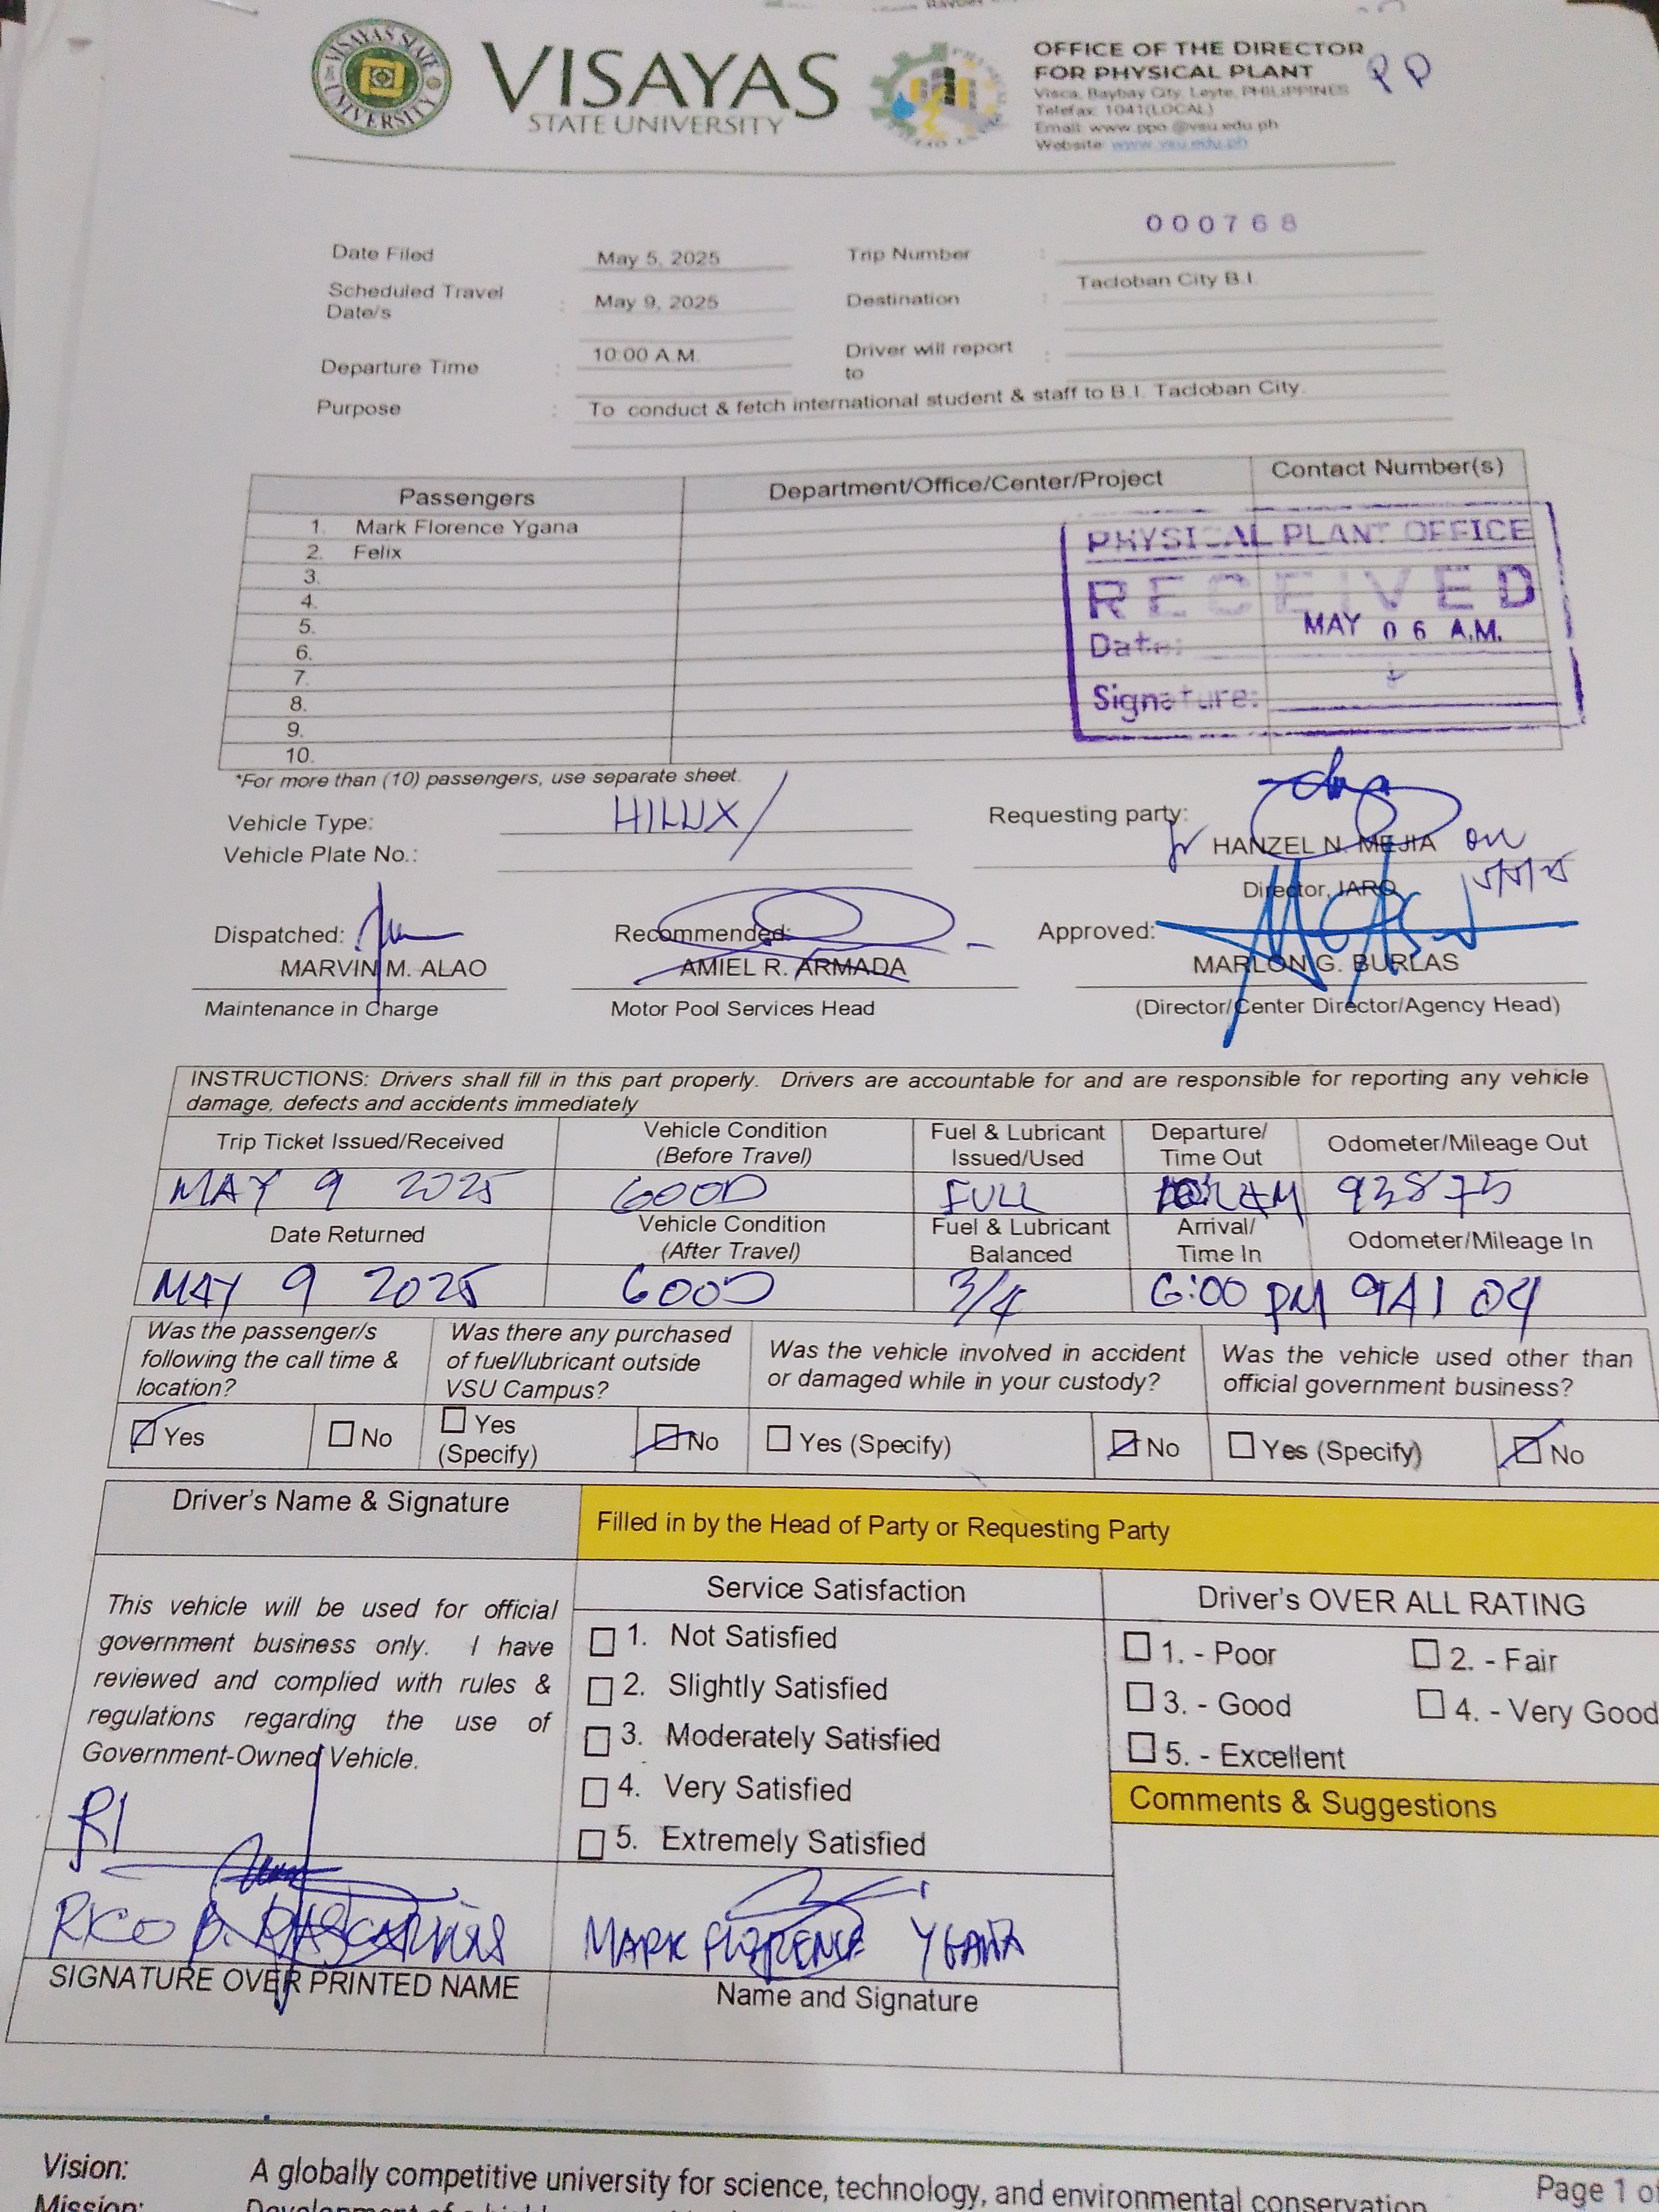 VISAYAS STATE UNIVERSITY
VISAYAS
STATE UNIVERSITY
OFFICE OF THE DIRECTOR
FOR PHYSICAL PLANT
Visca, Baybay City, Leyte, PHILIPPINES
Telefax: 1041(LOCAL)
Email: www.ppo @vsu.edu.ph
Website: www.vsu.edu.ph
000768
Date Filed May 5, 2025 Trip Number :
Scheduled Travel Date/s : May 9, 2025 Destination : Tacloban City B.I.
Departure Time : 10:00 A.M. Driver will report to :
Purpose : To conduct & fetch international student & staff to B.I. Tacloban City.
Passengers Department/Office/Center/Project Contact Number(s)
1. Mark Florence Ygana
2. Felix
3.
4.
5.
6.
7.
8.
9.
10.
PHYSICAL PLANT OFFICE
RECEIVED
Date: MAY 06 A.M.
Signature:
*For more than (10) passengers, use separate sheet.
Vehicle Type: HILUX
Vehicle Plate No.:
Requesting party:
HANZEL N. MEJIA
Director, IARO
Dispatched: Recommended: Approved:
MARVIN M. ALAO AMIEL R. ARMADA MARLON G. BURLAS
Maintenance in Charge Motor Pool Services Head (Director/Center Director/Agency Head)
INSTRUCTIONS: Drivers shall fill in this part properly. Drivers are accountable for and are responsible for reporting any vehicle
damage, defects and accidents immediately
Trip Ticket Issued/Received Vehicle Condition (Before Travel) Fuel & Lubricant Issued/Used Departure/ Time Out Odometer/Mileage Out
MAY 9 2025 GOOD FULL AM 93875
Date Returned Vehicle Condition (After Travel) Fuel & Lubricant Balanced Arrival/ Time In Odometer/Mileage In
MAY 9 2025 GOOD 3/4 6:00 PM 94104
Was the passenger/s following the call time & location? Was there any purchased of fuel/lubricant outside VSU Campus? Was the vehicle involved in accident or damaged while in your custody? Was the vehicle used other than official government business?
Yes No Yes (Specify) No Yes (Specify) No Yes (Specify) No
Driver's Name & Signature
Filled in by the Head of Party or Requesting Party
This vehicle will be used for official
government business only. I have
reviewed and complied with rules &
regulations regarding the use of
Government-Owned Vehicle.
Service Satisfaction
1. Not Satisfied
2. Slightly Satisfied
3. Moderately Satisfied
4. Very Satisfied
5. Extremely Satisfied
Driver's OVER ALL RATING
1. - Poor 2. - Fair
3. - Good 4. - Very Good
5. - Excellent
Comments & Suggestions
RICO B.
SIGNATURE OVER PRINTED NAME
MARK FLORENCE YGANA
Name and Signature
Vision: A globally competitive university for science, technology, and environmental conservation
Mission:
Page 1 of